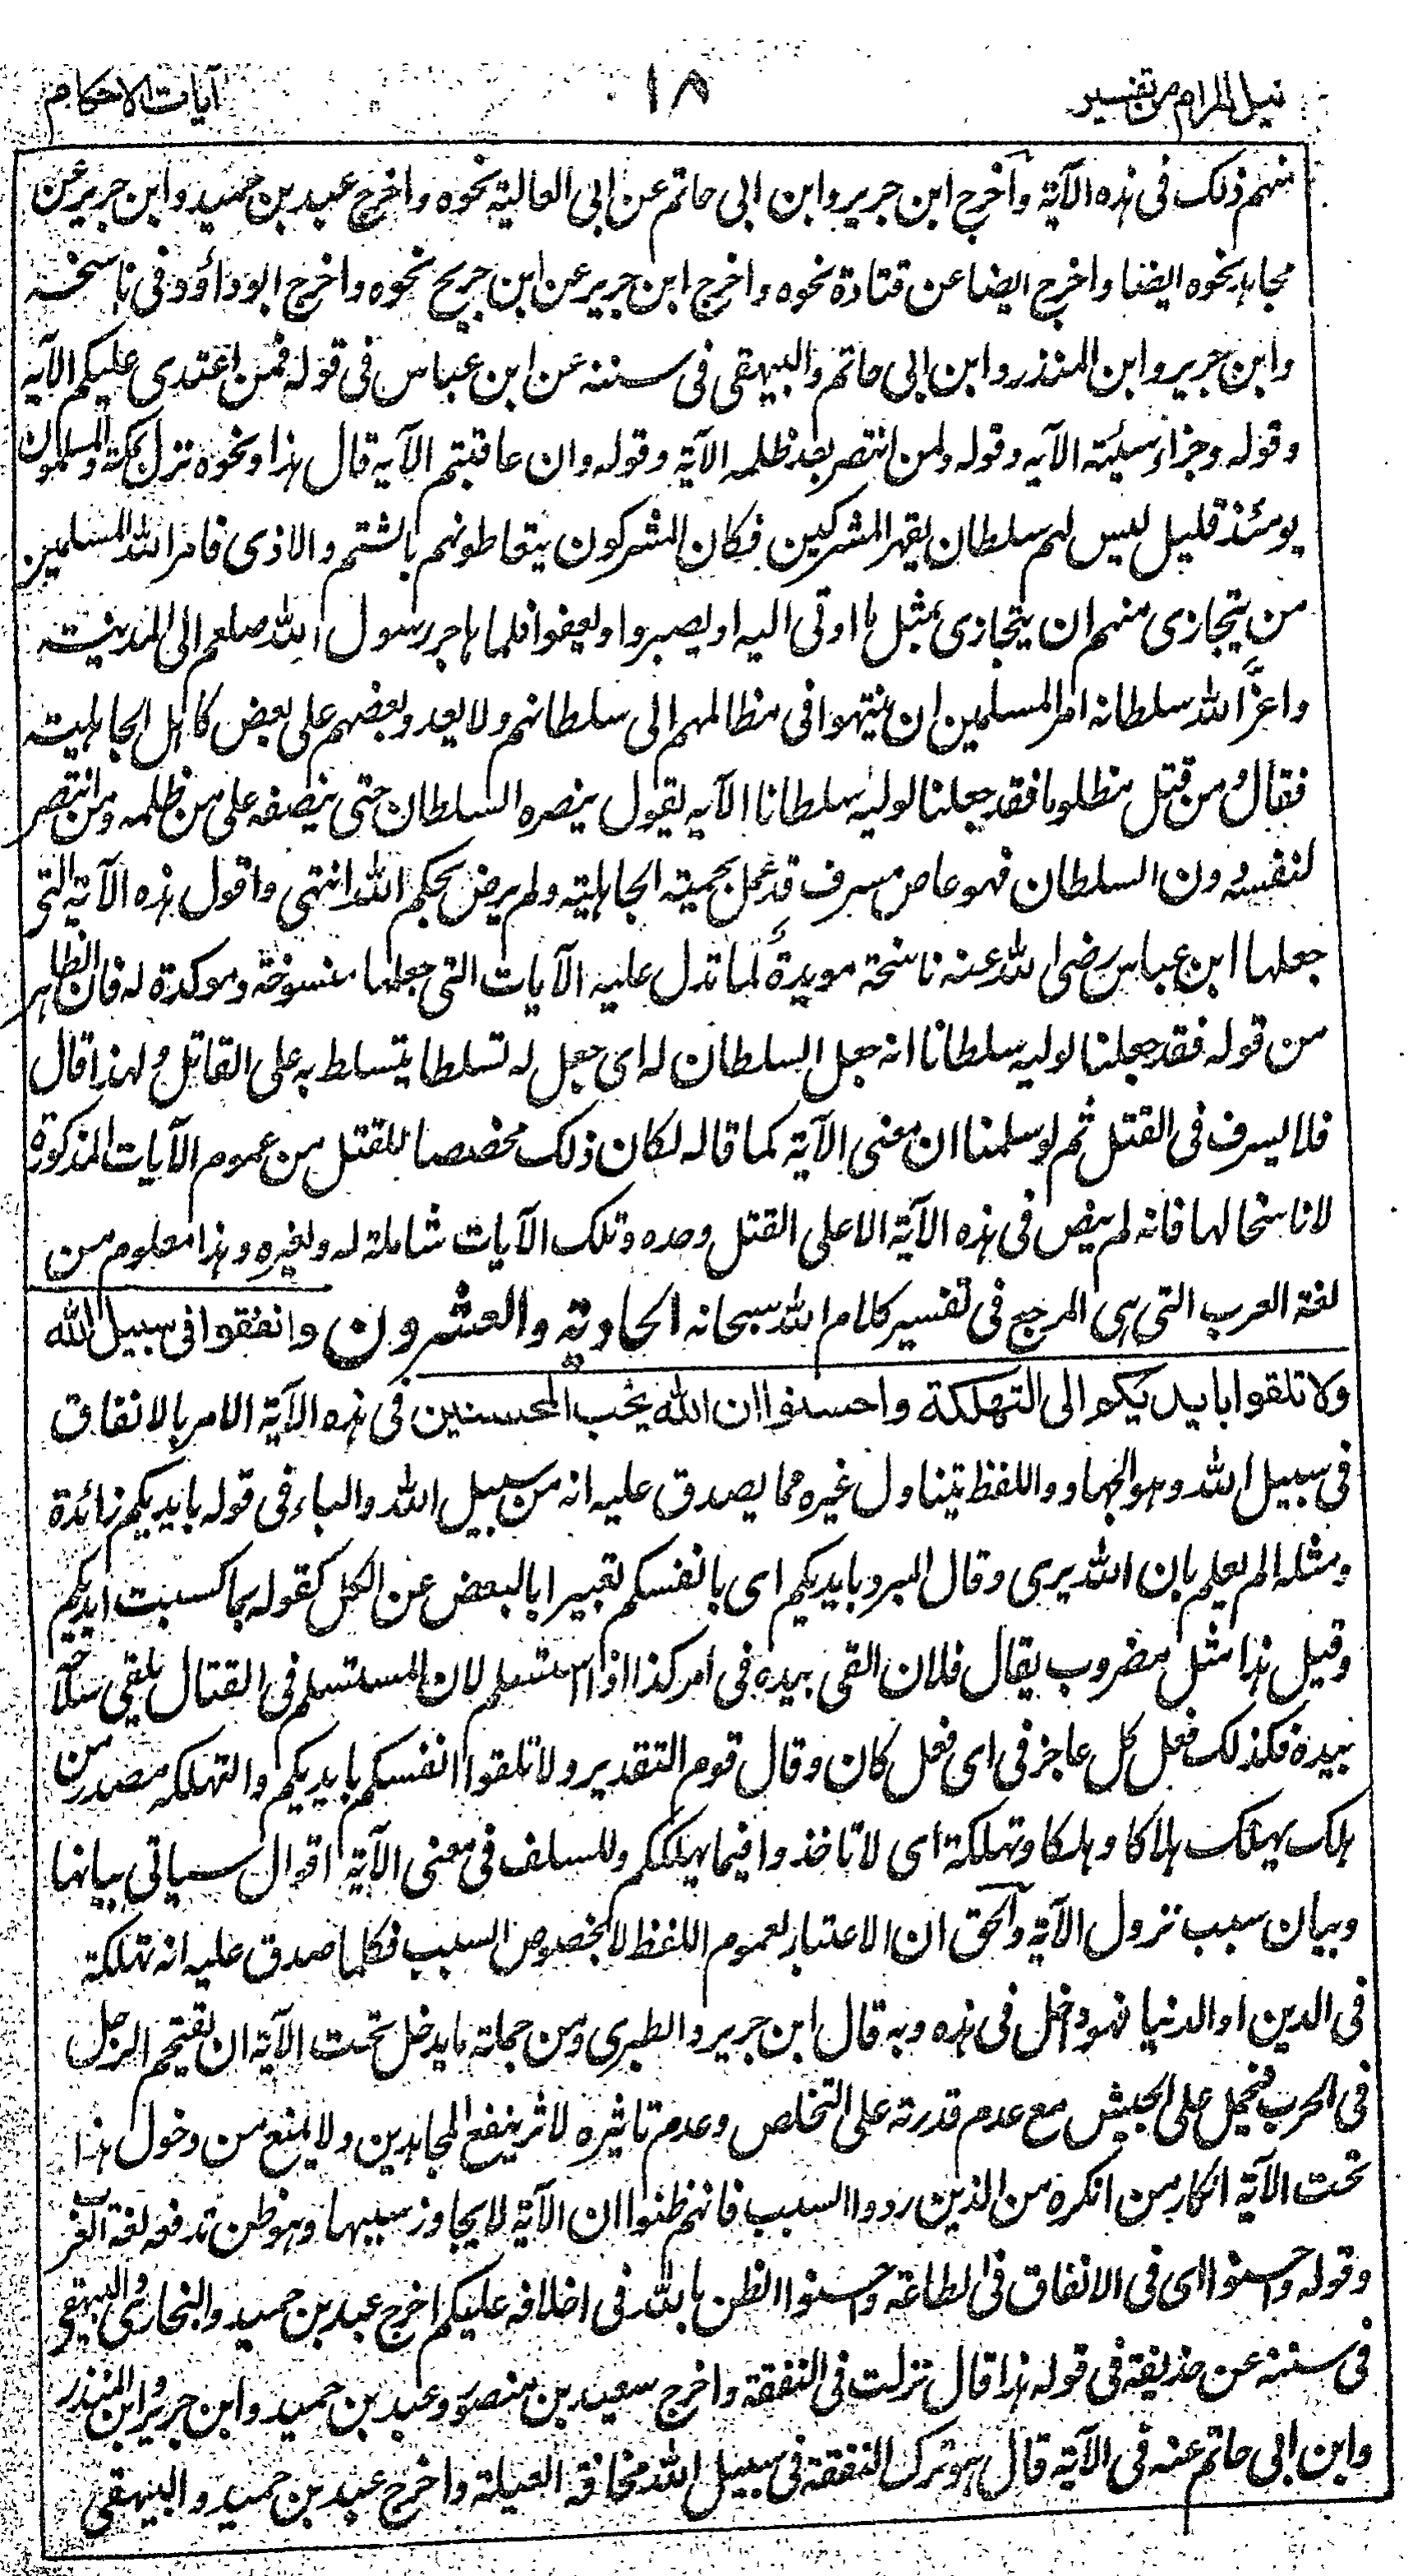 نيل المرام من تفسير
١٨
آيات الاحكام
منهم ذلك فى هذه الآية وأخرج ابن جرير وابن ابى حاتم عن ابى العالية نحوه واخرج عبد بن حميد وابن جرير عن
مجاهد نحوه ايضا واخرج ايضا عن قتادة نحوه واخرج ابن جرير عن ابن جريج نحوه واخرج ابوداؤد فى ناسخه
وابن جرير وابن المنذر وابن ابى حاتم والبيهقى فى سننه عن ابن عباس فى قوله فمن اعتدى عليكم الآية
وقوله وجزاء سيئة الآية وقوله ولمن انتصر بعد ظلمه الآية وقوله وان عاقبتم الآية قال هذا ونحوه نزل بمكة والمسلمون
يومئذ قليل ليس لهم سلطان يقهر المشركين فكان المشركون يتعاطونهم بالشتم والاذى فامر الله المسلمين
من يتجازى منهم ان يتجازى بمثل ما اوتى اليه او يصبروا ويعفوا فلما هاجر رسول الله صلعم الى المدينة
واعزّ الله سلطانه امر المسلمين ان ينتهوا فى مظالمهم الى سلطانهم ولا يعدو بعضهم على بعض كاهل الجاهلية
فقال ومن قتل مظلوما فقد جعلنا لوليه سلطانا الآية يقول ينصره السلطان حتى ينصفه على من ظلمه ومن انتصر
لنفسه دون السلطان فهو عاص مسرف قد عمل بحمية الجاهلية ولم يرض بحكم الله انتهى واقول هذه الآية التى
جعلها ابن عباس رضى الله عنه ناسخة مويدة لما تدل عليه الآيات التى جعلها منسوخة وموكدة له فان الظاهر
من قوله فقد جعلنا لوليه سلطانا انه جعل السلطان له اى جعل له تسلطا يتسلط به على القاتل ولهذا قال
فلا يسرف فى القتل ثم لو سلمنا ان معنى الآية كما قاله لكان ذلك مخصصا للقتل من عموم الآيات المذكورة
لا ناسخا لها فانه لم ينص فى هذه الآية الا على القتل وحده وتلك الآيات شاملة له ولغيره وهذا معلوم من
لغة العرب التى هى المرجع فى تفسير كلام الله سبحانه الحادية والعشرون وانفقوا فى سبيل الله
ولا تلقوا بايديكم الى التهلكة واحسنوا ان الله يحب المحسنين فى هذه الآية الامر بالانفاق
فى سبيل الله وهو الجهاد واللفظ يتناول غيره مما يصدق عليه انه من سبيل الله والباء فى قوله بايديكم زائدة
ومثله الم يعلم بان الله يرى وقال المبرد بايديكم اى بانفسكم تعبيرا بالبعض عن الكل كقوله بما كسبت ايديكم
وقيل هذا مثل مضروب يقال فلان القى بيده فى امر كذا اذا استسلم لان المستسلم فى القتال يلقى سلاحه
بيده فكذلك فعل كل عاجز فى اى فعل كان وقال قوم التقدير ولا تلقوا انفسكم بايديكم والتهلكه مصدر من
هلك يهلك هلاكا وهلكا وتهلكة اى لا تاخذوا فيما يهلككم وللسلف فى معنى الآية اقوال سياتى بيانها
وبيان سبب نزول الآية والحق ان الاعتبار لعموم اللفظ لا بخصوص السبب فكلما صدق عليه انه تهلكة
فى الدين او الدنيا فهو داخل فى هذه وبه قال ابن جرير والطبرى ومن جملة ما يدخل تحت الآية ان يقتحم الرجل
فى الحرب فيحمل على الجيش مع عدم قدرته على التخلص وعدم تاثيره لاثر ينفع المجاهدين ولا يمنع من دخول هذا
تحت الآية انكار من انكره من الذين رووا السبب فانهم ظنوا ان الآية لا يجاوز سببها وهو ظن تدفعه لغة العرب
وقوله واحسنوا اى فى الانفاق فى الطاعة واحسنوا الظن بالله فى اخلافه عليكم اخرج عبد بن حميد والبخارى والبيهقى
فى سننه عن حذيفة فى قوله هذا قال نزلت فى النفقة واخرج سعيد بن منصور وعبد بن حميد وابن جرير وابن المنذر
وابن ابى حاتم عنه فى الآية قال هو ترك النفقة فى سبيل الله مخافة العيلة واخرج عبد بن حميد والبيهقى